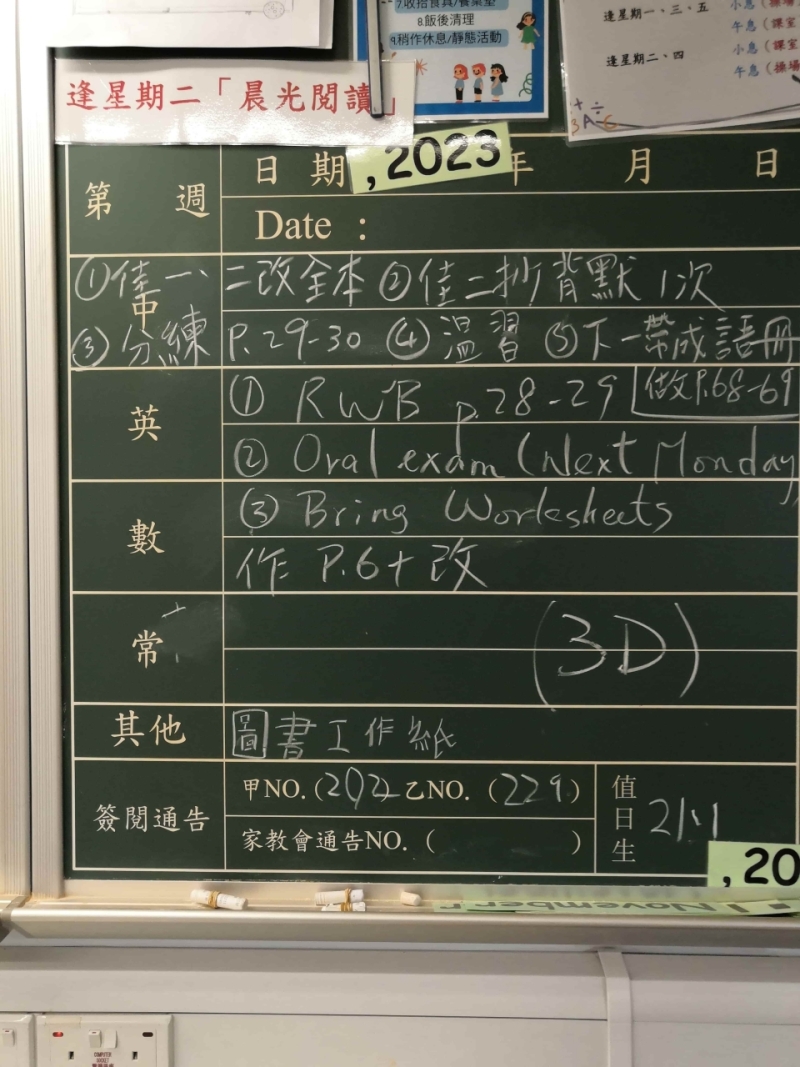 7.收拾食具/餐桌墊
8.飯後清理
9.稍作休息/靜態活動
逢星期一、三、五
小息（操場
午息（課室
逢星期二、四
小息（課室
午息（操場
3A-6
逢星期二「晨光閱讀」
第 週
日 期 ,2023 年 月 日
Date :
中
①佳一、二改全本 ②佳二抄背默1次
③分練 P.29-30 ④溫習 ⑤下一帶成語冊
英
① RWB p.28-29 做P.68-69
② Oral exam (Next Monday
③ Bring Worksheets
數
作 P.6+改
常
(3D)
其他
圖書工作紙
簽閱通告
甲NO.(202 乙NO.(229)
家教會通告NO.( )
值日生
21
,20
November